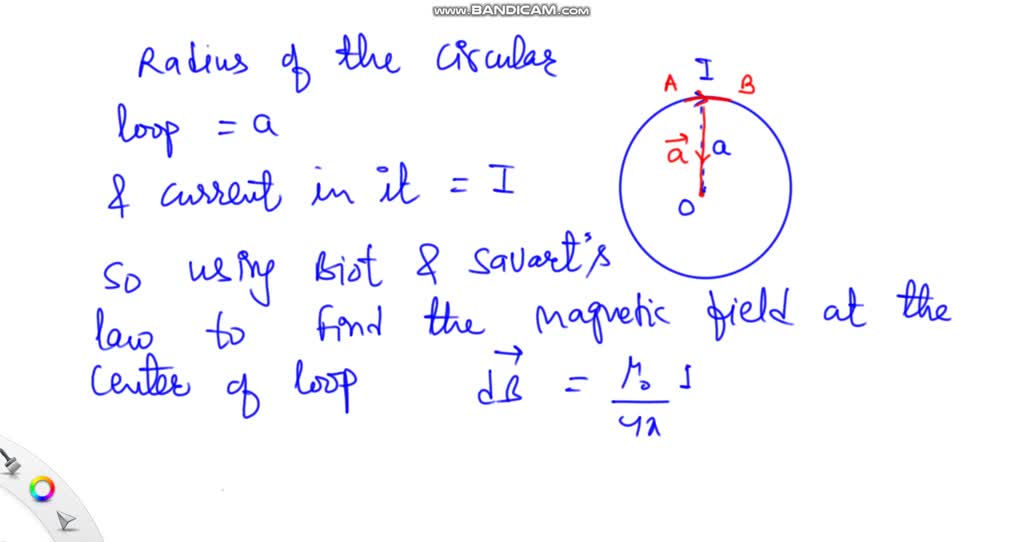 www.BANDICAM.com
Radius of the circular
loop = a
& current in it = I
So using Biot & Savart's
law to find the magnetic field at the
center of loop dB⃗ = μ₀/4π I
I
A B
a⃗ a
O